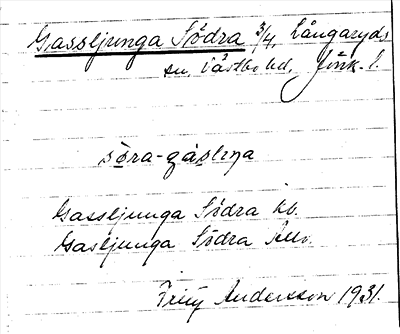 Gassljunga Södra 3/4, Långaryds
sn, Västbo hd, Jönk. l.
söra-gásliŋa
Gassljunga Södra kb.
Gasljunga Södra
Fritz Andersson 1931.